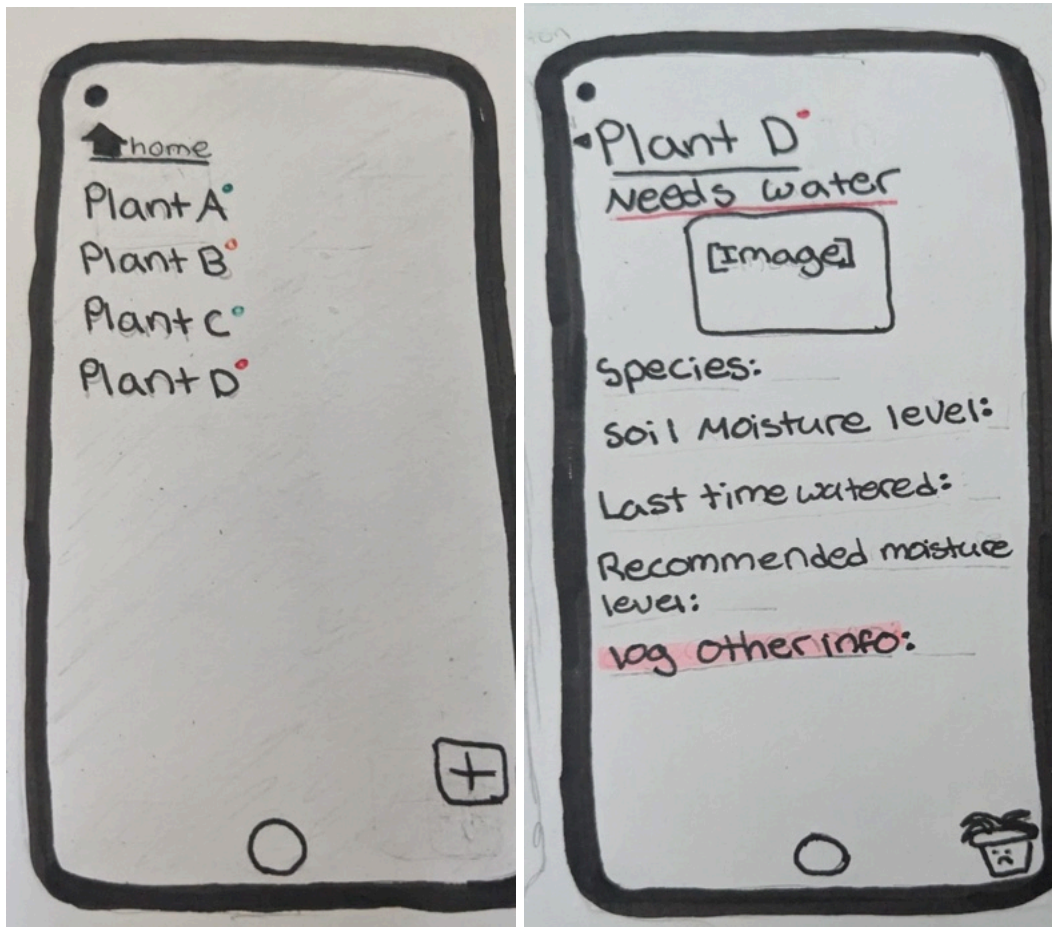 home
Plant A
Plant B
Plant C
Plant D
+
Plant D
Needs water
[Image]
Species:
Soil Moisture level:
Last time watered:
Recommended moisture
level:
log other info: